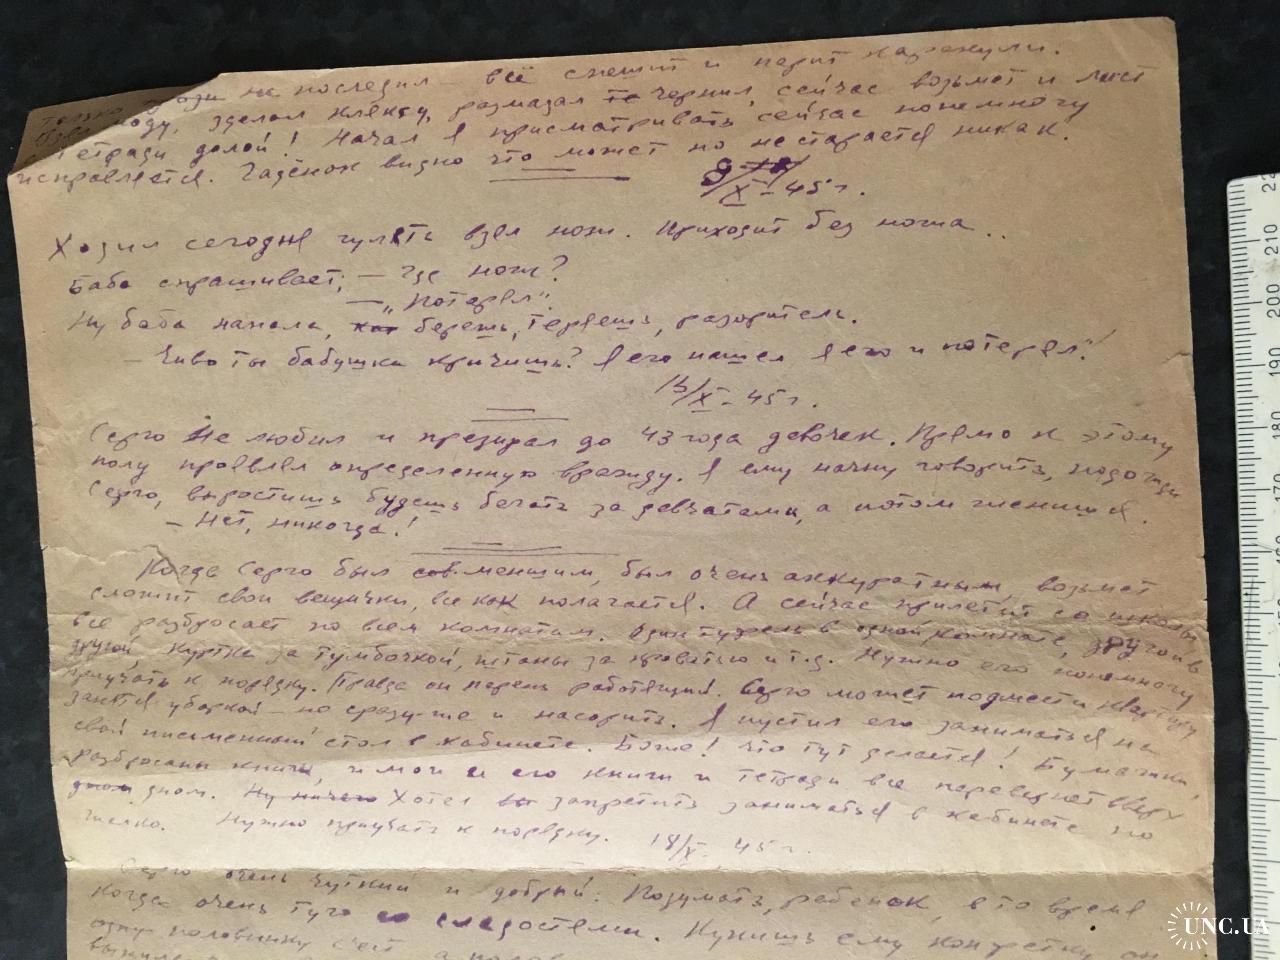 только не последил — всё спешит и
воду, зделал кляксу, размазал те чернил, сейчас возьмет и лист
с тетради долой! Начал я присматривать сейчас понемногу
исправляется. Гадёнок видно что может но не старается никак.
X – 45 г.
Ходил сегодня гулять взял нож. Приходит без ножа..
Баба спрашивает; — где нож?
— „Потерял".
Ну баба начала, берешь, теряешь, разоритель.
— Чиво ты бабушка кричишь? Я его нашел я его и потерял"!
13/X – 45 г.
Серго не любил и презирал до 43 года девочек. Прямо к этому
полу проявлял определенную вражду. Я ему начну говорить, подожди
Серго, выростишь будешь бегать за девчатами, а потом женишся.
— Нет, никогда!
Когда Серго был сов. меншим, был очень аккуратным, возьмет
сложит свои вещички, все как полагается. А сейчас прилетит со школы
все разбросает по всем комнатам. Один туфель в одной комнате, другой в
другой, куртка за тумбочкой, штаны за кроватью и т.д. Нужно его понемногу
приучать к порядку. Правда он парень работящий. Серго может подмести квартиру
занятся уборкой — но сразу-же и насорить. Я пустил его заниматься на
свой писменный стол в кабинете. Боже! что тут делается! Бумажки,
разбросаны книги, и мои и его книги и тетради все перевернет вверх
дном дном. Ну ничего Хотел вы запретить заниматься в кабинете но
жалко. Нужно приучать к порядку. 18/X – 45 г.
Серго очень чуткий и добрый. Подумать, ребенок, в то время
когда очень туго со сладостями. Купишь ему конфетку он
одну половинку съест а
UNC.UA
210
200
190
180
170